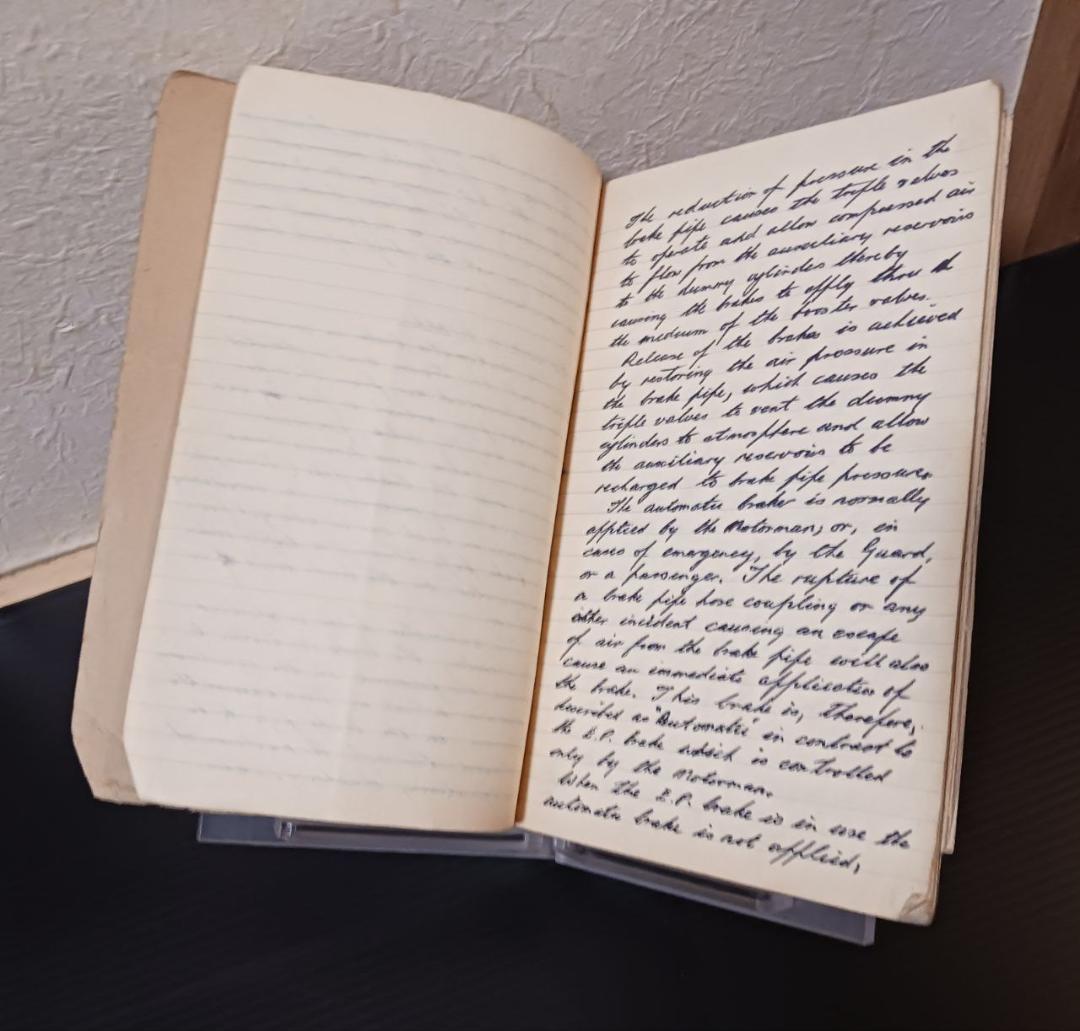 The reduction of pressure in the
brake pipe causes the triple valves
to operate and allow compressed air
to flow from the auxiliary reservoirs
to the dummy cylinders thereby
causing the brakes to apply thro the
the medium of the booster valves.
Release of the brakes is achieved
by restoring the air pressure in
the brake pipe, which causes the
triple valves to vent the dummy
cylinders to atmosphere and allow
the auxiliary reservoirs to be
recharged to brake pipe pressure.
The automatic brake is normally
applied by the Motorman, or, in
cases of emergency, by the Guard,
or a passenger. The rupture of
a brake pipe hose coupling or any
other incident causing an escape
of air from the brake pipe will also
cause an immediate application of
the brake. This brake is, therefore,
described as "Automatic" in contrast to
the E.P. brake which is controlled
only by the Motorman.
When the E.P. brake is in use the
automatic brake is not applied,